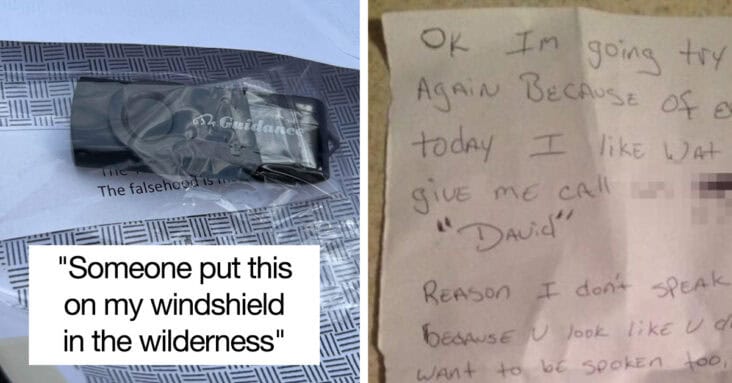 Guidance
The falsehood is
"Someone put this
on my windshield
in the wilderness"
OK Im going try
Again Because of
today I like WAt
give me call
"DAvid"
REASON I don't SPEAK
because u look like u
WANt to be SPOKEN too,